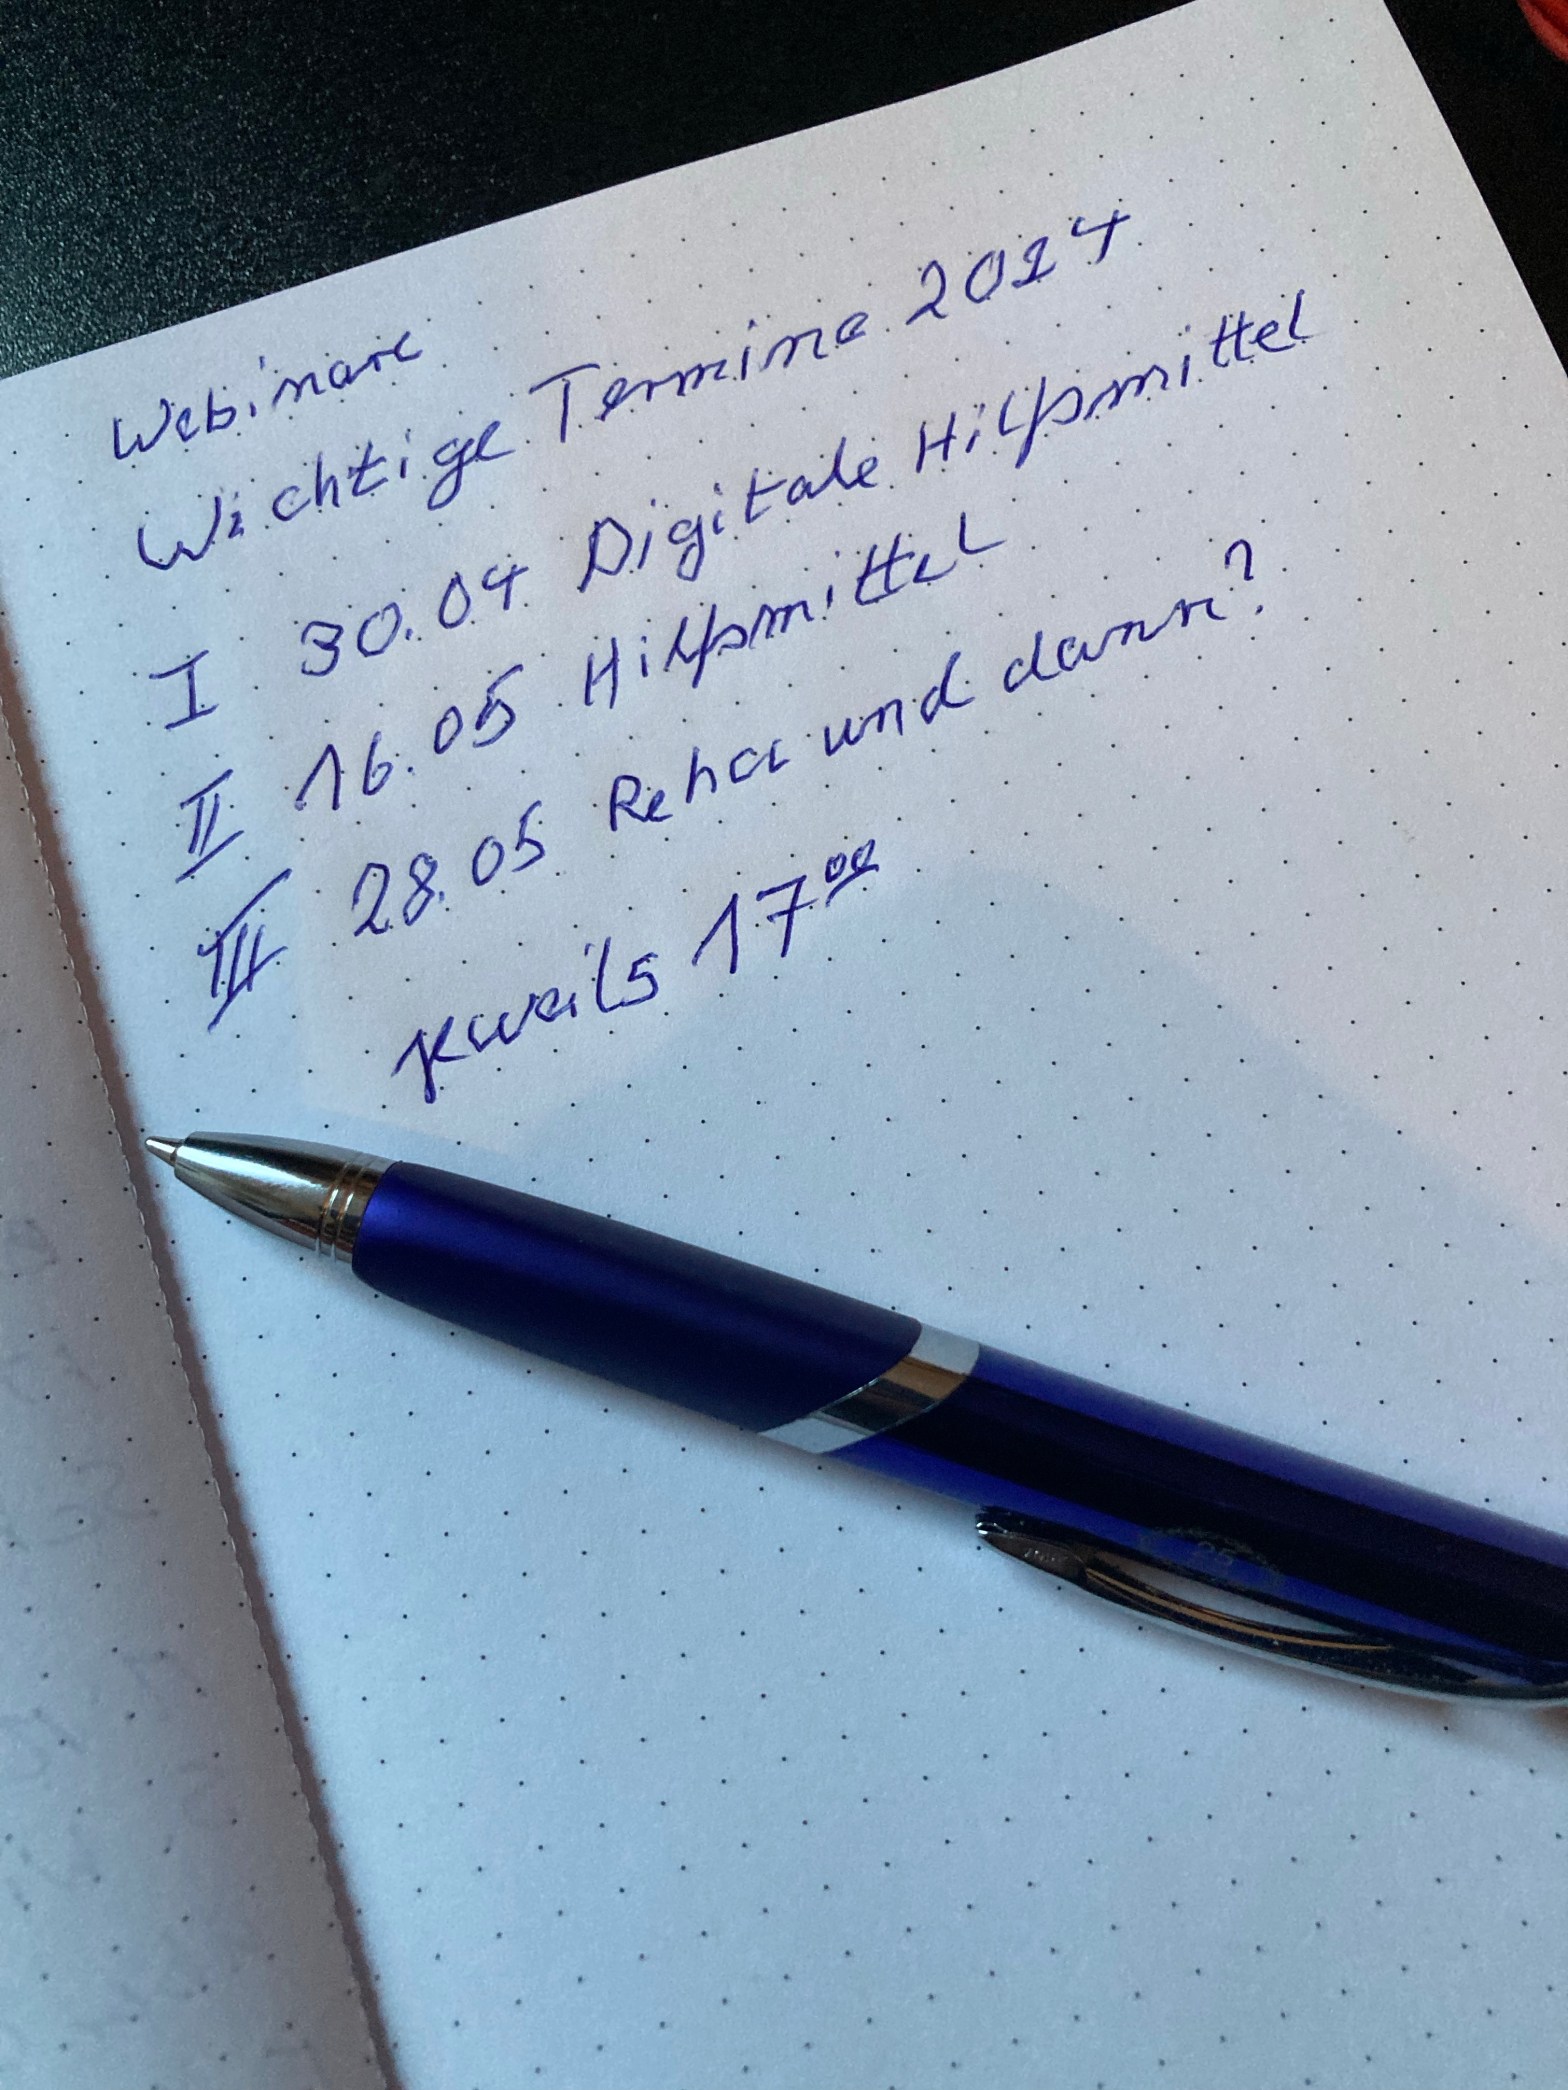 Webinare
Wichtige Termine 2024
I 30.04 Digitale Hilfsmittel
II 16.05 Hilfsmittel
III 28.05 Reha und dann?
jeweils 17⁰⁰
25